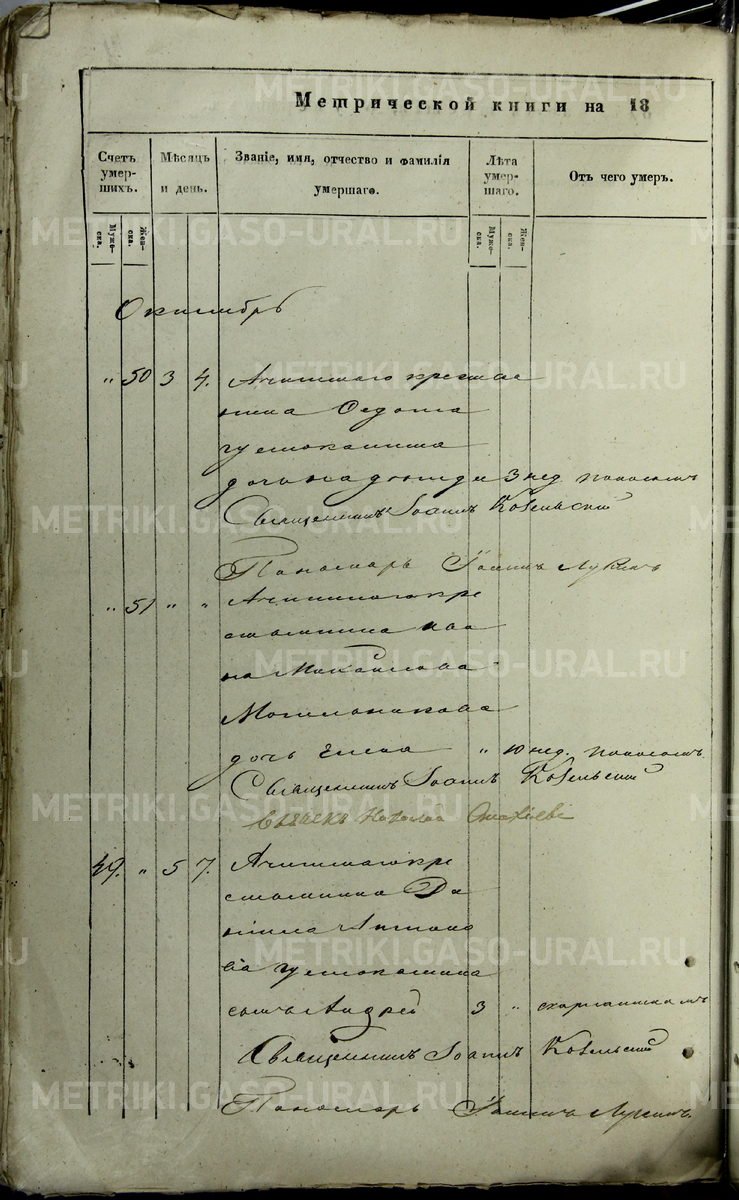 Метрической книги на 18
Счетъ умер-шихъ. Мѣсяцъ и день. Званіе, имя, отчество и фамилія умершаго. Лѣта умер-шаго. Отъ чего умеръ.
Муже-ска. Жен-ска. Муже-ска. Жен-ска.
Октябрь
" 50 3 4. Ачитскаго крестья
нина Федота
дочь 3 нед. поносомъ
Священникъ Іоаннъ Козельскій
Пономарь Іоаннъ Лукинъ
" 51 " " Ачитскаго кре
стьянина Ива
на Михайлова
Могильникова
дочь Елена " 10 нед. поносомъ
Священникъ Іоаннъ Козельскій
Николай
49. " 5 7. Ачитскаго кре
стьянина Да
ніила Антоно
ва
сынъ Андрей 3 " скарлатиномъ
Священникъ Іоаннъ Козельскій
Пономарь Іоаннъ Лукинъ
METRIKI.GASO-URAL.RU